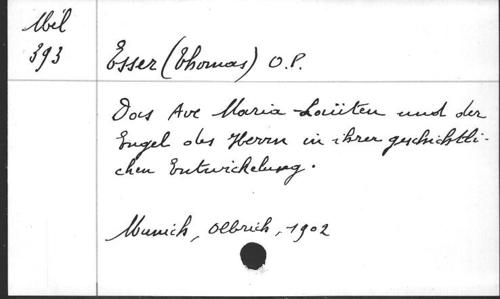 Mél
393
Esser (Thomas) O.P.
Das Ave Maria-Laüten und der
Engel des Herrn in ihrer geschichtli-
chen Entwickelung.
Munich, Olbrich, 1902